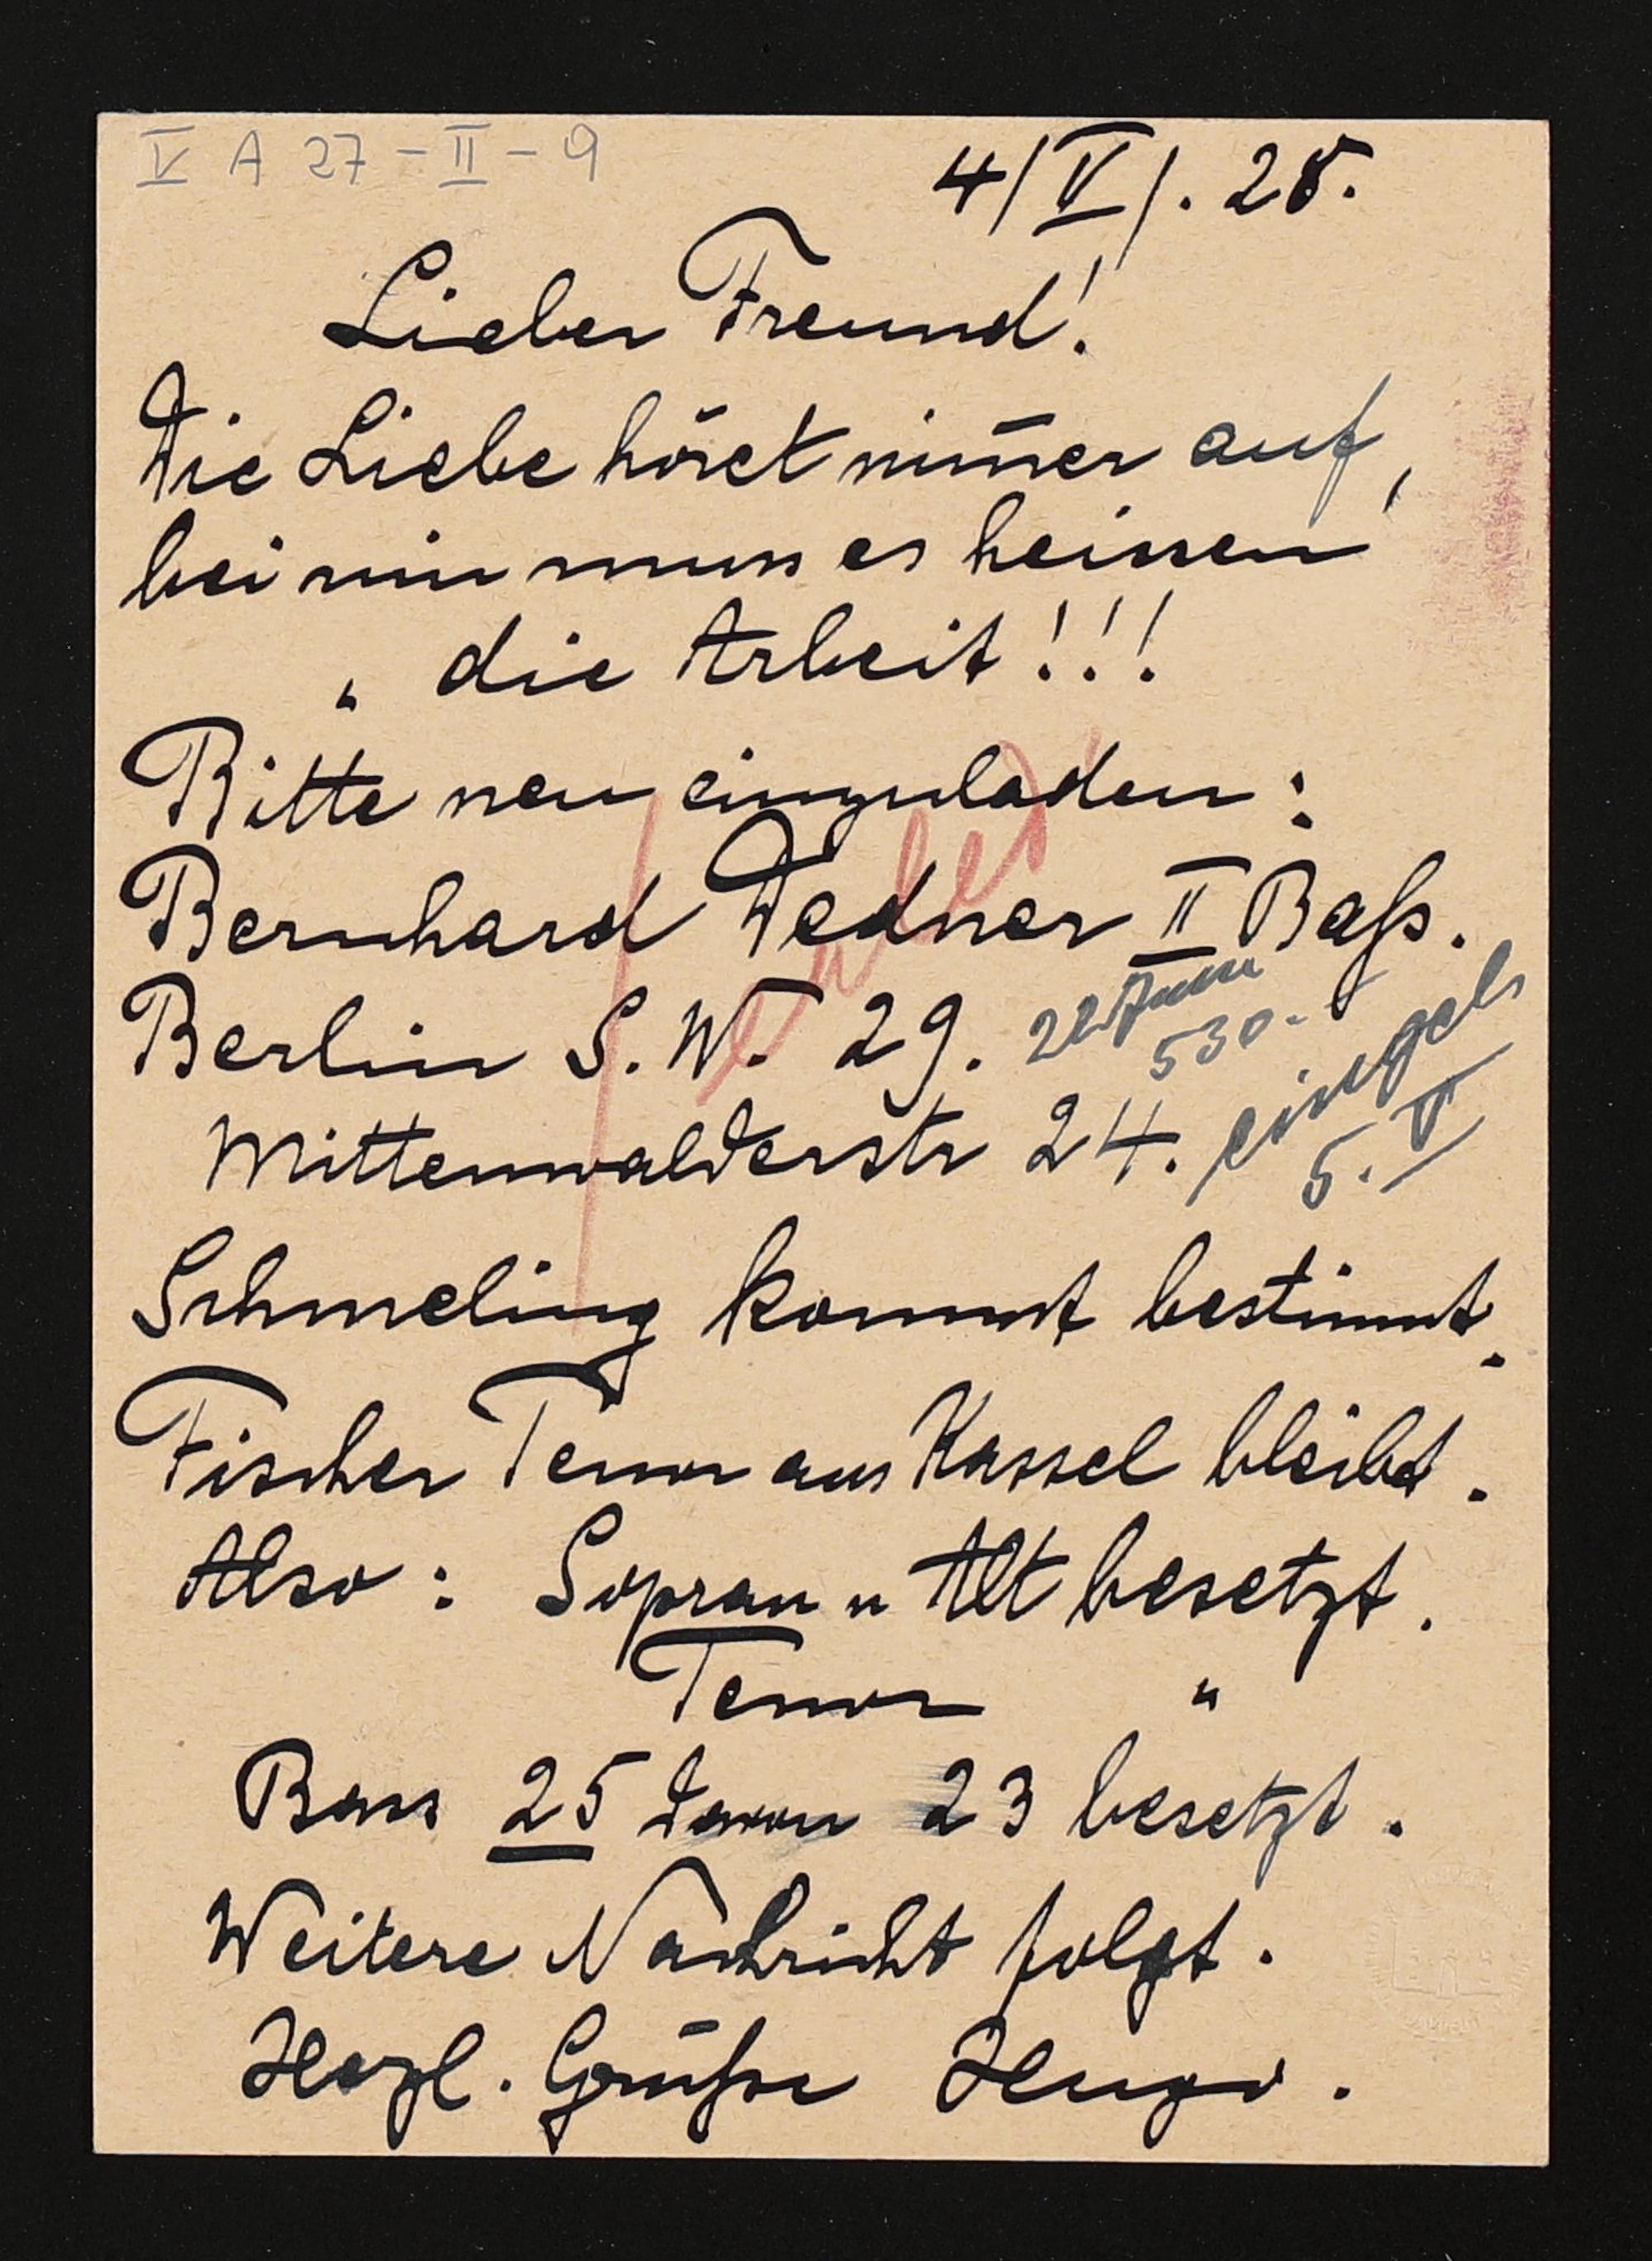 V A 27-II-9
4/V/. 25.
Lieber Freund!
Die Liebe höret nim̄er auf,
bei mir muss es heissen
„ die Arbeit!!!
Bitte neu einzuladen:
Bernhard Dedner II Baß.
Berlin S.W. 29.
22 Juni
530.-
Mittenwalderstr 24.
eingel
5. V
erled
Schmeling kommt bestimmt.
Fischer Tenor aus Kassel bleibt.
Also: Sopran u Alt besetzt.
Tenor "
Bass 25 davon 23 besetzt.
Weitere Nachricht folgt.
Herzl. Grüße Hugo.